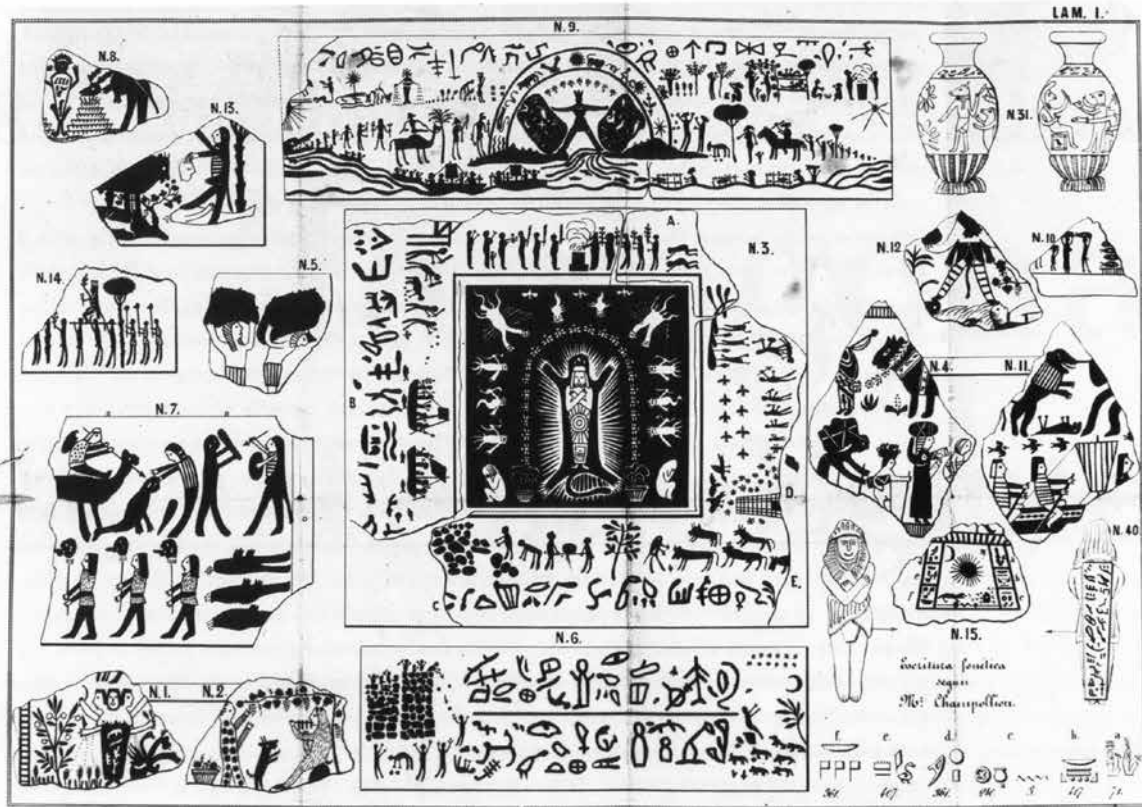 LAM. I.
N.9.
N.8.
N.13.
N.31.
A.
N.3.
N.12
N.10.
N.14.
N.5.
B
N.4.
N.11.
N.7.
D.
N.40
E.
C
N.15.
N.6.
Escritura fonetica
segun
Mr. Champollion.
N.1.
N.2.
f. e. d c. b. a.